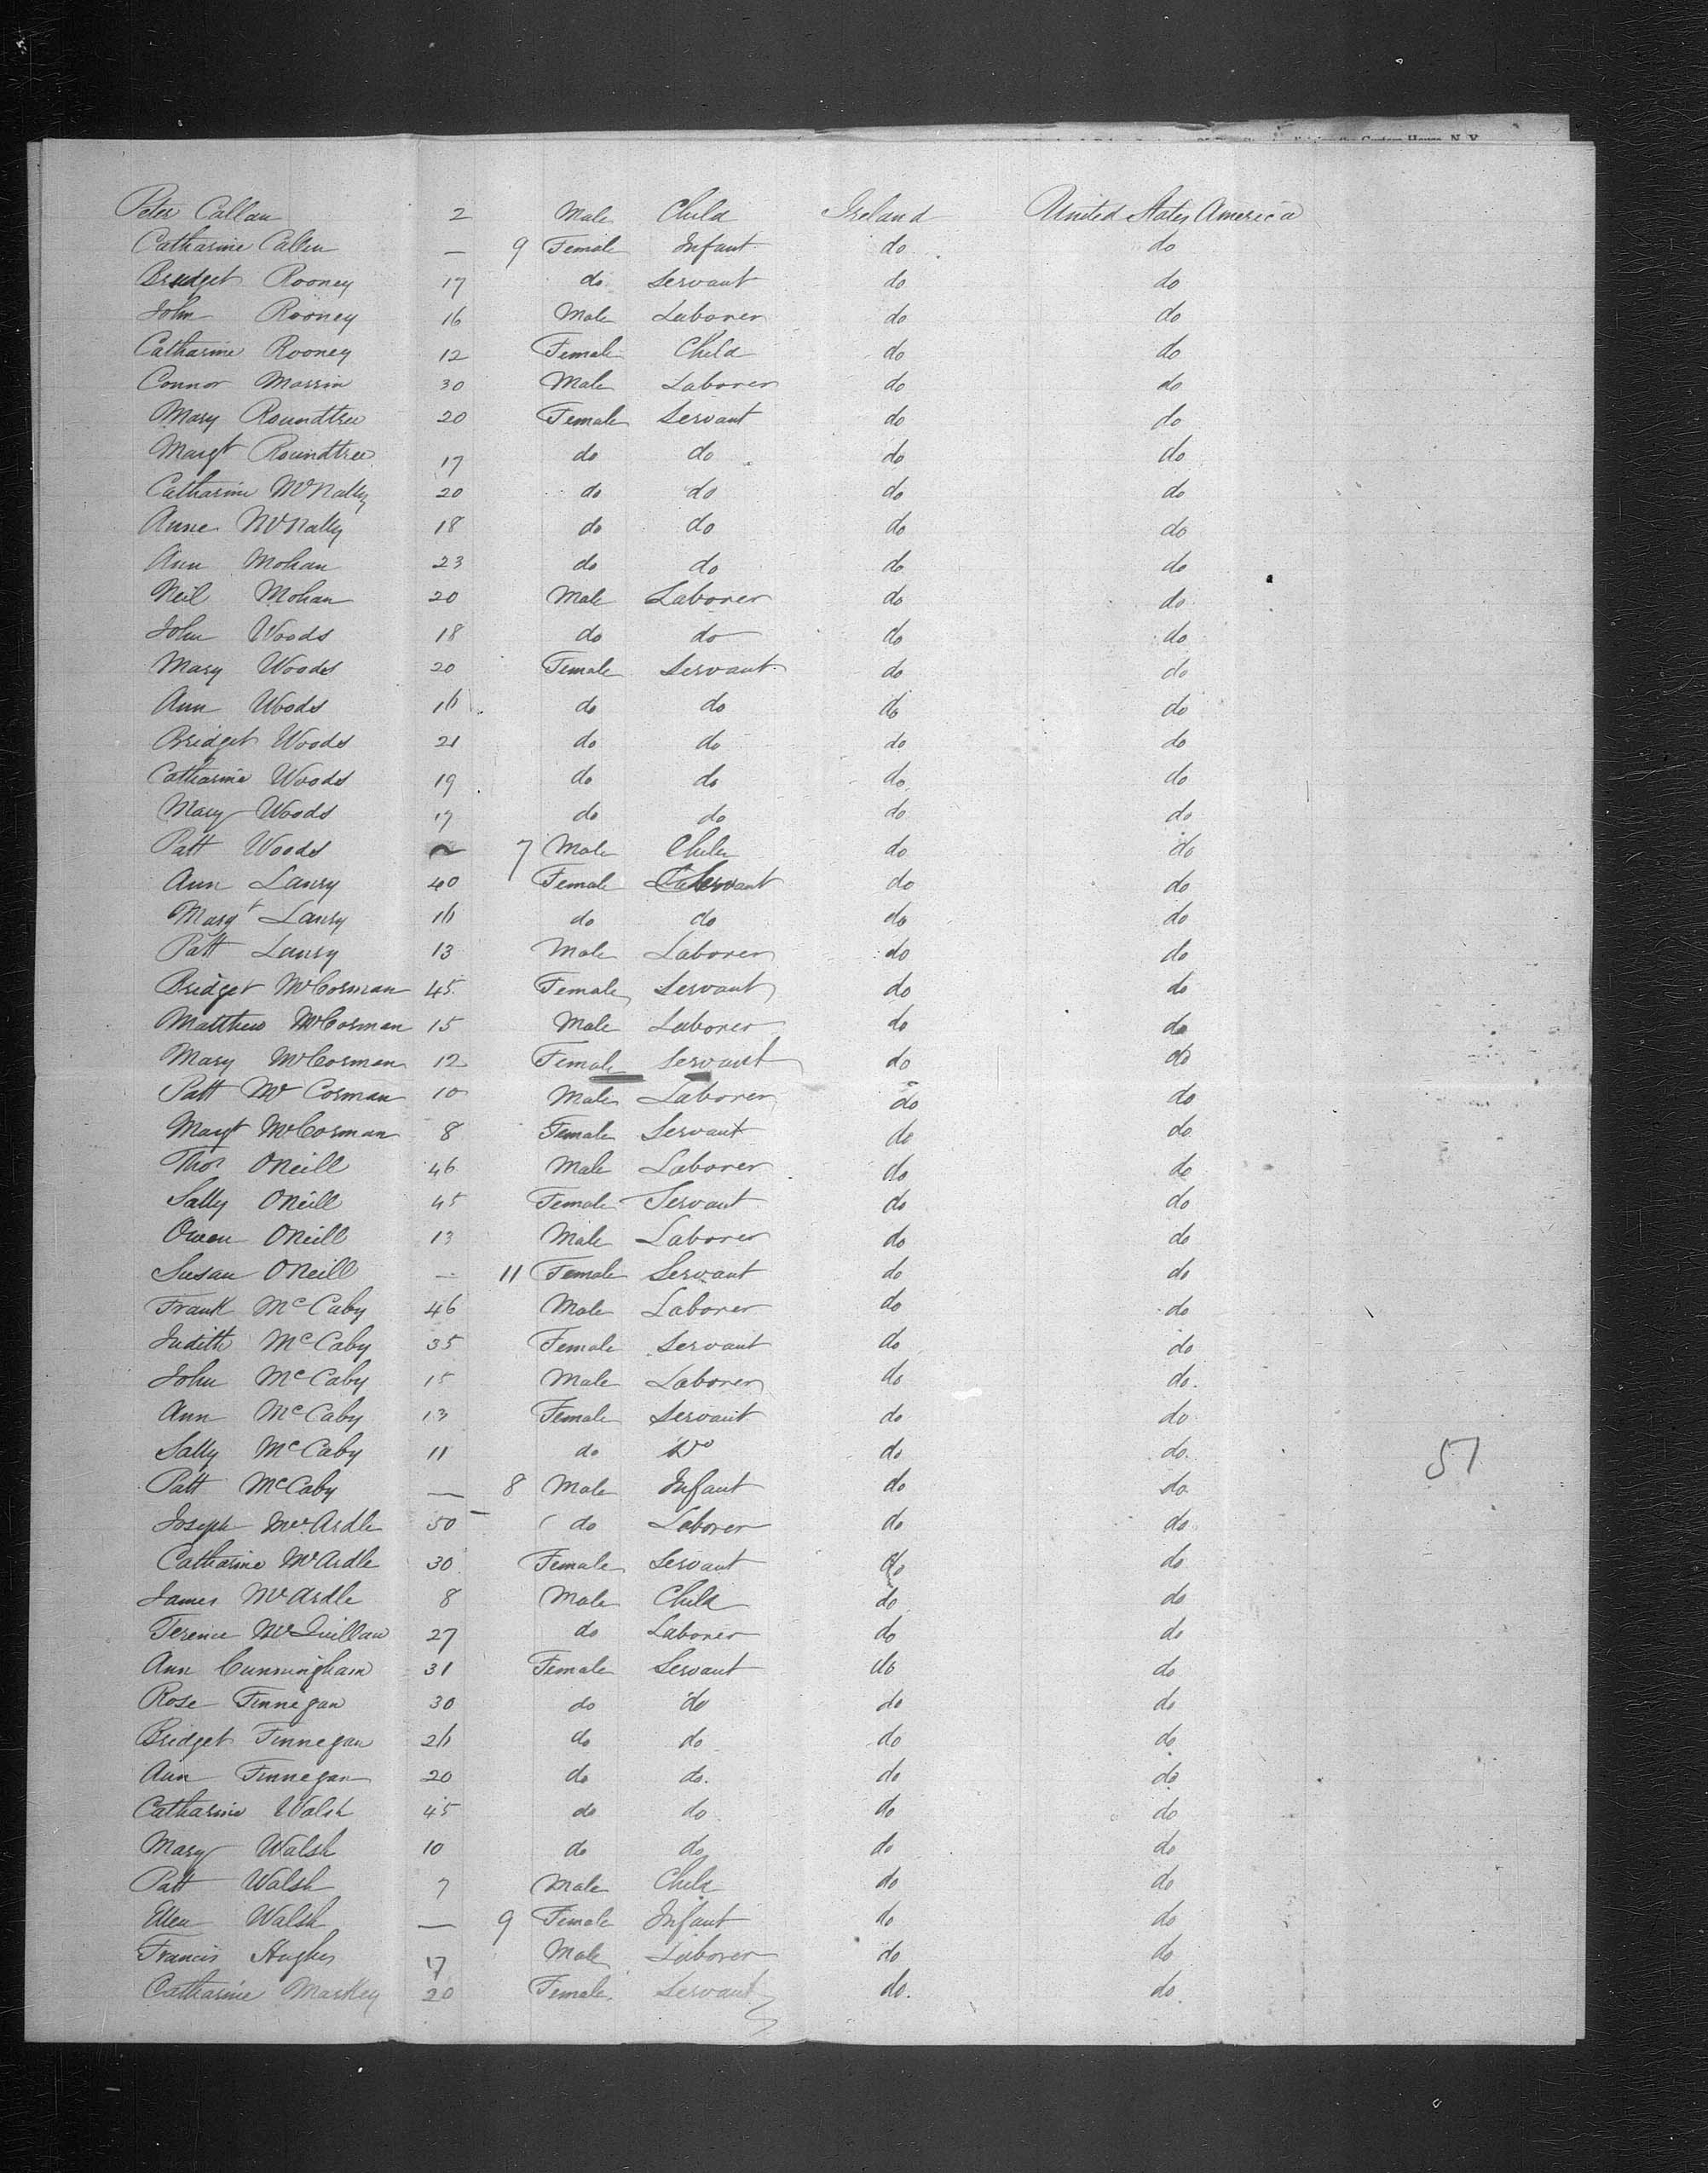 Peter Callan 2 Male Child Ireland United States America
Catharine Callen — 9 Female Infant do do
Bridget Rooney 17 do Servant do do
John Rooney 16 Male Laborer do do
Catharine Rooney 12 Female Child do do
Connor Marrin 30 Male Laborer do do
Mary Roundtree 20 Female Servant do do
Margt Roundtree 17 do do do do
Catharine McNally 20 do do do do
Anne McNally 18 do do do do
Ann Mohan 23 do do do do
Neil Mohan 20 Male Laborer do do
John Woods 18 do do do do
Mary Woods 20 Female Servant do do
Ann Woods 16 do do do do
Bridget Woods 21 do do do do
Catharine Woods 19 do do do do
Mary Woods 17 do do do do
Patt Woods 7 Male Child do do
Ann Lanry 40 Female Servant do do
Margt Lanry 16 do do do do
Patt Lanry 13 Male Laborer do do
Bridget McCorman 45 Female Servant do do
Matthew McCorman 15 Male Laborer do do
Mary McCorman 12 Female Servant do do
Patt McCorman 10 Male Laborer do do
Margt McCorman 8 Female Servant do do
Thos ONeill 46 Male Laborer do do
Sally ONeill 45 Female Servant do do
Owen ONeill 13 Male Laborer do do
Susan ONeill — 11 Female Servant do do
Frank McCaby 46 Male Laborer do do
Judith McCaby 35 Female Servant do do
John McCaby 15 Male Laborer do do
Ann McCaby 13 Female Servant do do
Sally McCaby 11 do Do do do
57
Patt McCaby — 8 Male Infant do do
Joseph McArdle 50 do Laborer do do
Catharine McArdle 30 Female Servant do do
James McArdle 8 Male Child do do
Terence McQuillan 27 do Laborer do do
Ann Cunningham 31 Female Servant do do
Rose Finnegan 30 do do do do
Bridget Finnegan 26 do do do do
Ann Finnegan 20 do do. do do
Catharine Walsh 45 do do do do
Mary Walsh 10 do do do do
Patt Walsh 7 Male Child do do
Ellen Walsh — 9 Female Infant do do
Francis Hughes 17 Male Laborer do do
Catharine Markey 20 Female Servant do. do